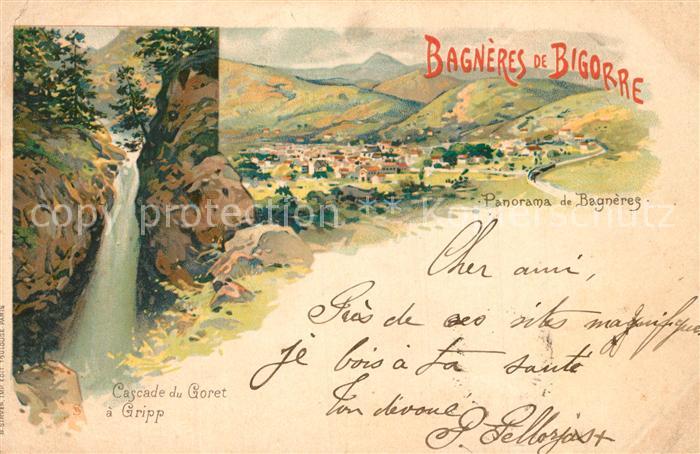 BAGNÈRES DE BIGORRE
Panorama de Bagnères
Cher ami,
Près de ces sites magnifiques
je bois à ta santé
Ton dévoué
Cascade du Goret
à Gripp
copyright protection ** Kopierschutz